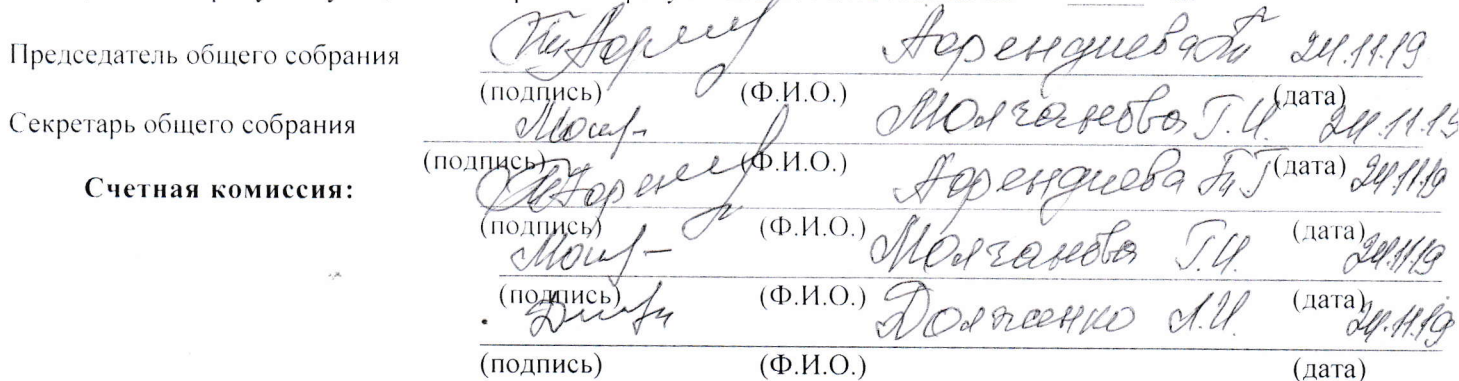 Председатель общего собрания 24.11.19
(подпись) (Ф.И.О.) (дата)
Секретарь общего собрания Молчанова Г.И. 24.11.19
(подпись) (Ф.И.О.) (дата)
Счетная комиссия: 24.11.19
(подпись) (Ф.И.О.) (дата)
Молчанова Г.И. 24.11.19
(подпись) (Ф.И.О.) (дата)
Долженко Л.И. 24.11.19
(подпись) (Ф.И.О.) (дата)